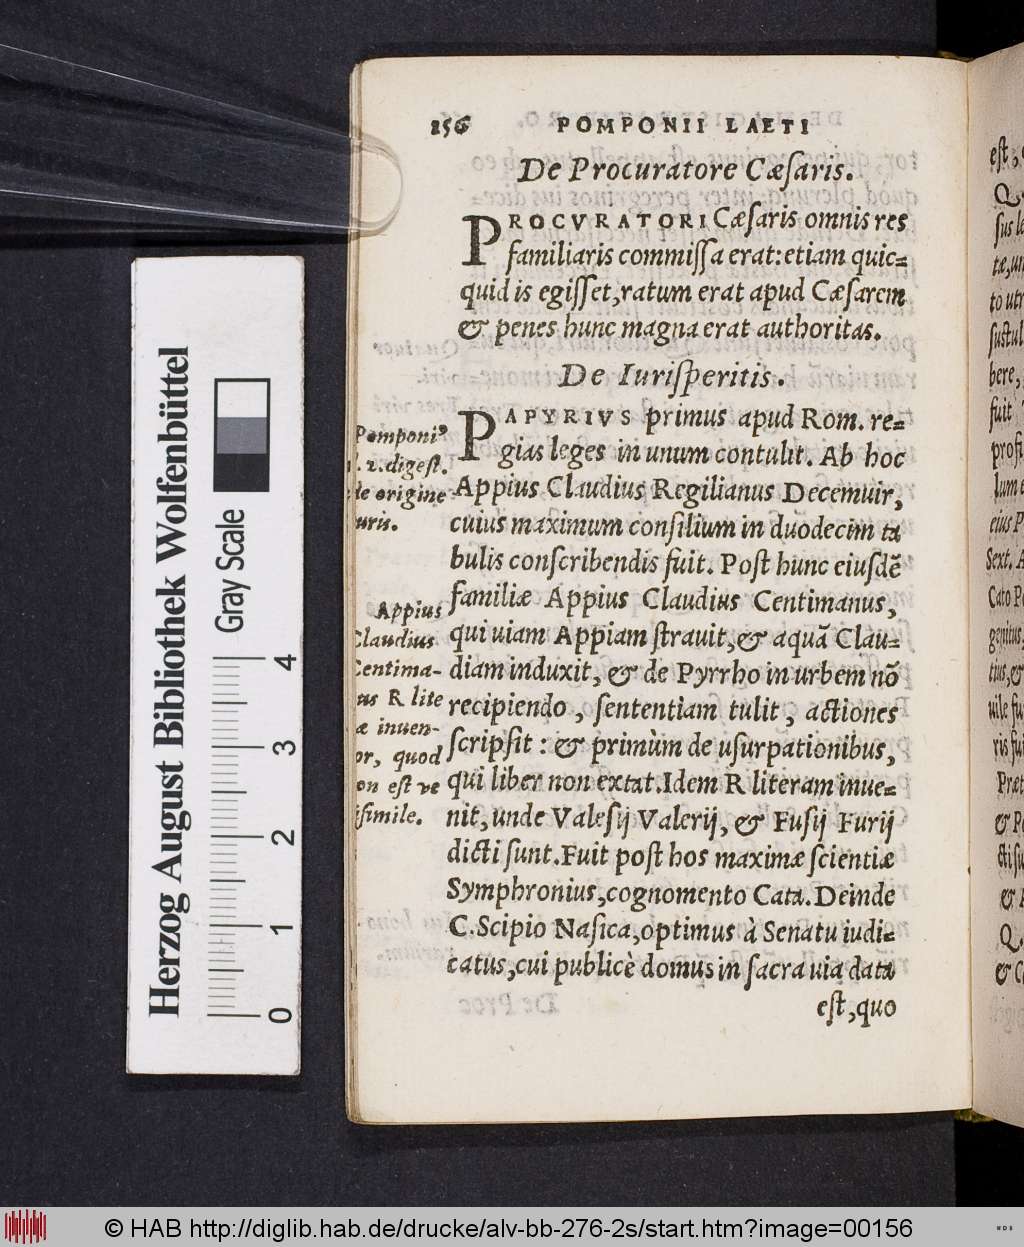 156 POMPONII LAETI
De Procuratore Cæſaris.
PROCVRATORI Cæſaris omnis res
familiaris commiſſa erat: etiam quic=
quid is egiſſet, ratum erat apud Cæſarem
& penes hunc magna erat authoritas.
De Iuriſperitis.
PAPYRIVS primus apud Rom. re=
gias leges in unum contulit. Ab hoc
Appius Claudius Regilianus Decemuir,
cuius maximum conſilium in duodecim ta
bulis conſcribendis fuit. Poſt hunc eiuſdē
familiæ Appius Claudius Centimanus,
qui uiam Appiam ſtrauit, & aquā Clau=
diam induxit, & de Pyrrho in urbem nō
recipiendo, ſententiam tulit, actiones
ſcripſit: & primùm de uſurpationibus,
qui liber non extat. Idem R literam inue=
nit, unde Valeſij Valerij, & Fuſij Furij
dicti ſunt. Fuit poſt hos maximæ ſcientiæ
Symphronius, cognomento Cata. Deinde
C. Scipio Naſica, optimus à Senatu iudi=
catus, cui publicè domus in ſacra uia data
eſt, quo
Pomponi⁹
l. 2. digeſt.
de origine
iuris.
Appius
Claudius
Centima-
nus R lite
æ inuen-
or, quod
on eſt ve
iſimile.
eſt,
ſus
tæ, un
to utr
ſuſtul
bere,
fuit
profi
lum
eius P
Sext. A
Cato Po
genitus,
tius, &
uile fu
ris fui
Præt
& Po
cti ſu
& 
Q.
& C
Herzog August Bibliothek Wolfenbüttel
Gray Scale
0 1 2 3 4
© HAB http://diglib.hab.de/drucke/alv-bb-276-2s/start.htm?image=00156
WDB